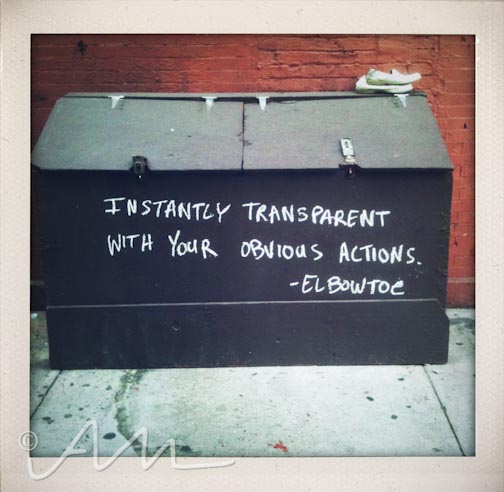 INSTANTLY TRANSPARENT
WITH YOUR OBVIOUS ACTIONS.
-ELBOWTOE